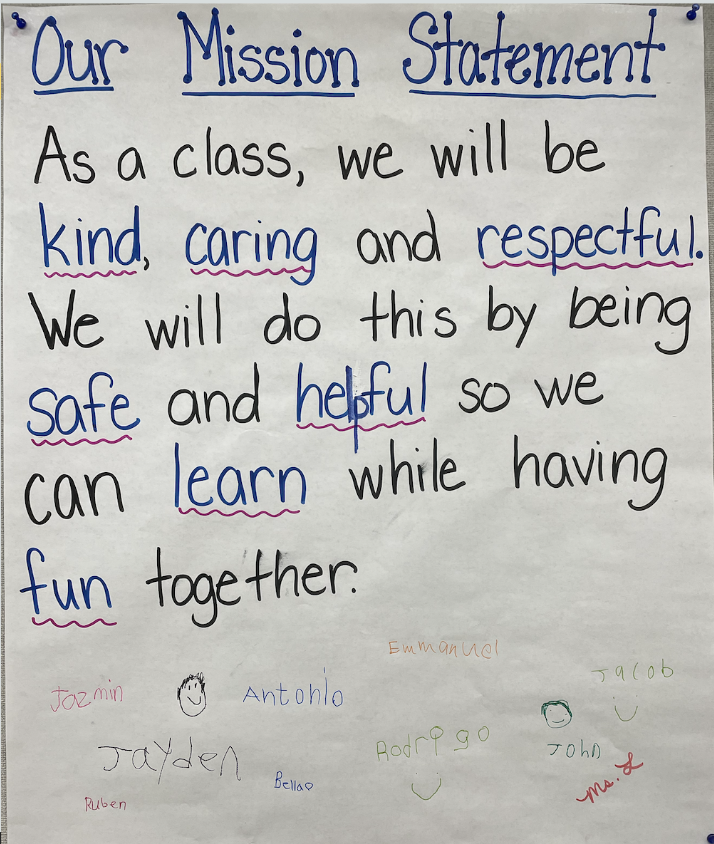 Our Mission Statement
As a class, we will be
kind, caring and respectful.
We will do this by being
safe and helpful so we
can learn while having
fun together.
Emmanuel
Jacob
Jazmin
Antonio
Rodrigo
John
Jayden
Bella
Ms. L
Ruben